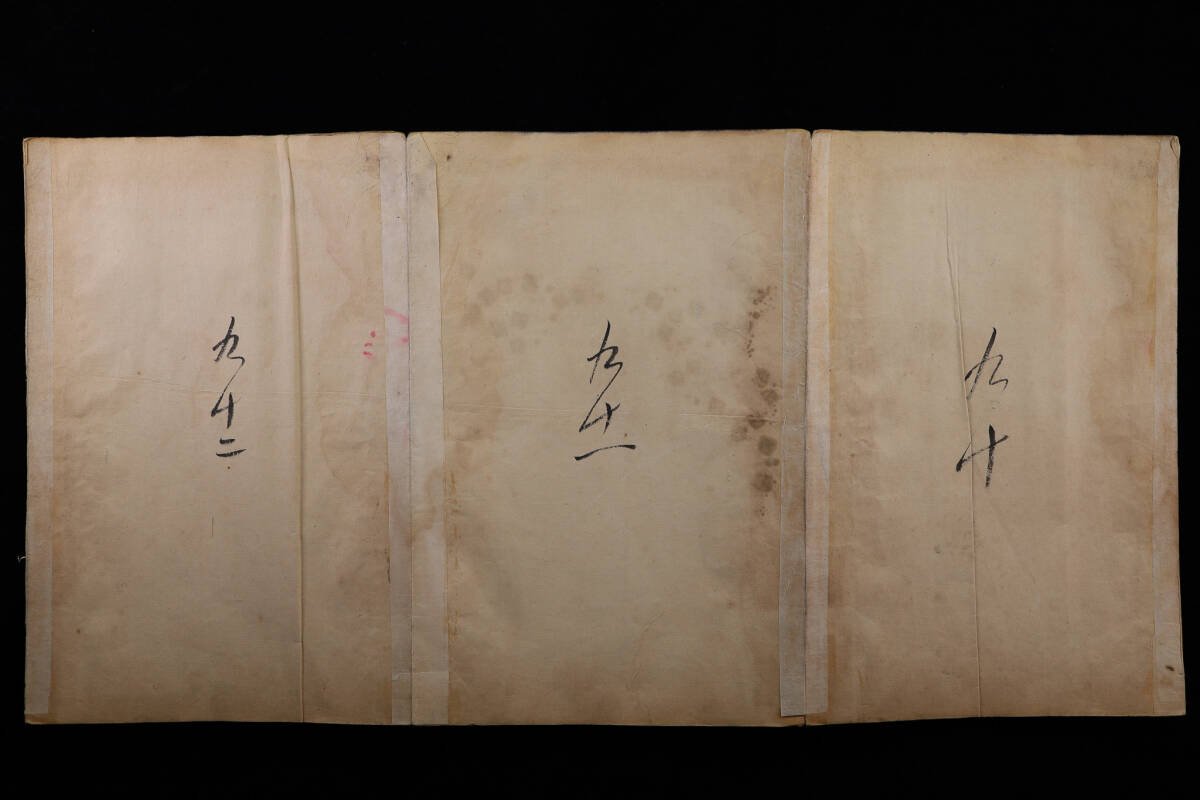 九十
九十一
九十二